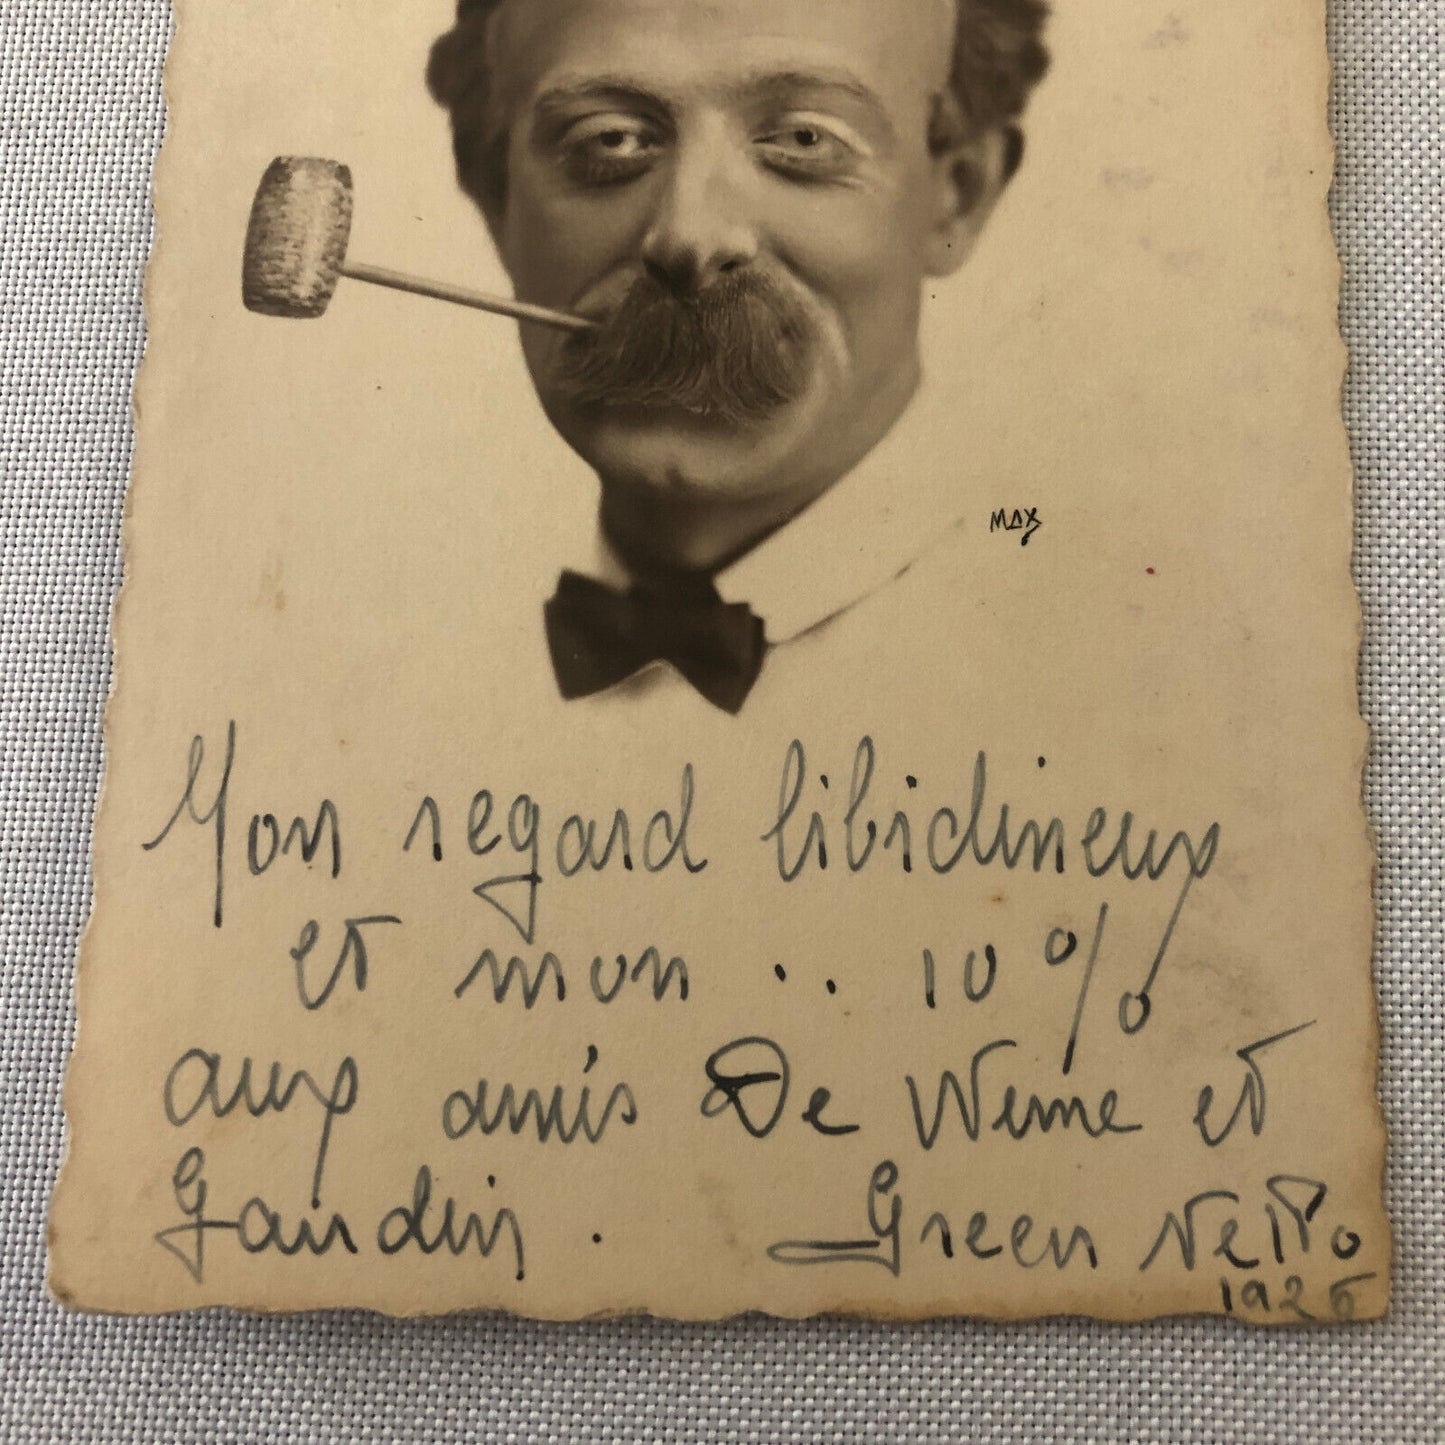 MAX
Mon regard libidineux
et mon .. 10 %
aux amis De Weme et
Gaudin. Green Netto
1926